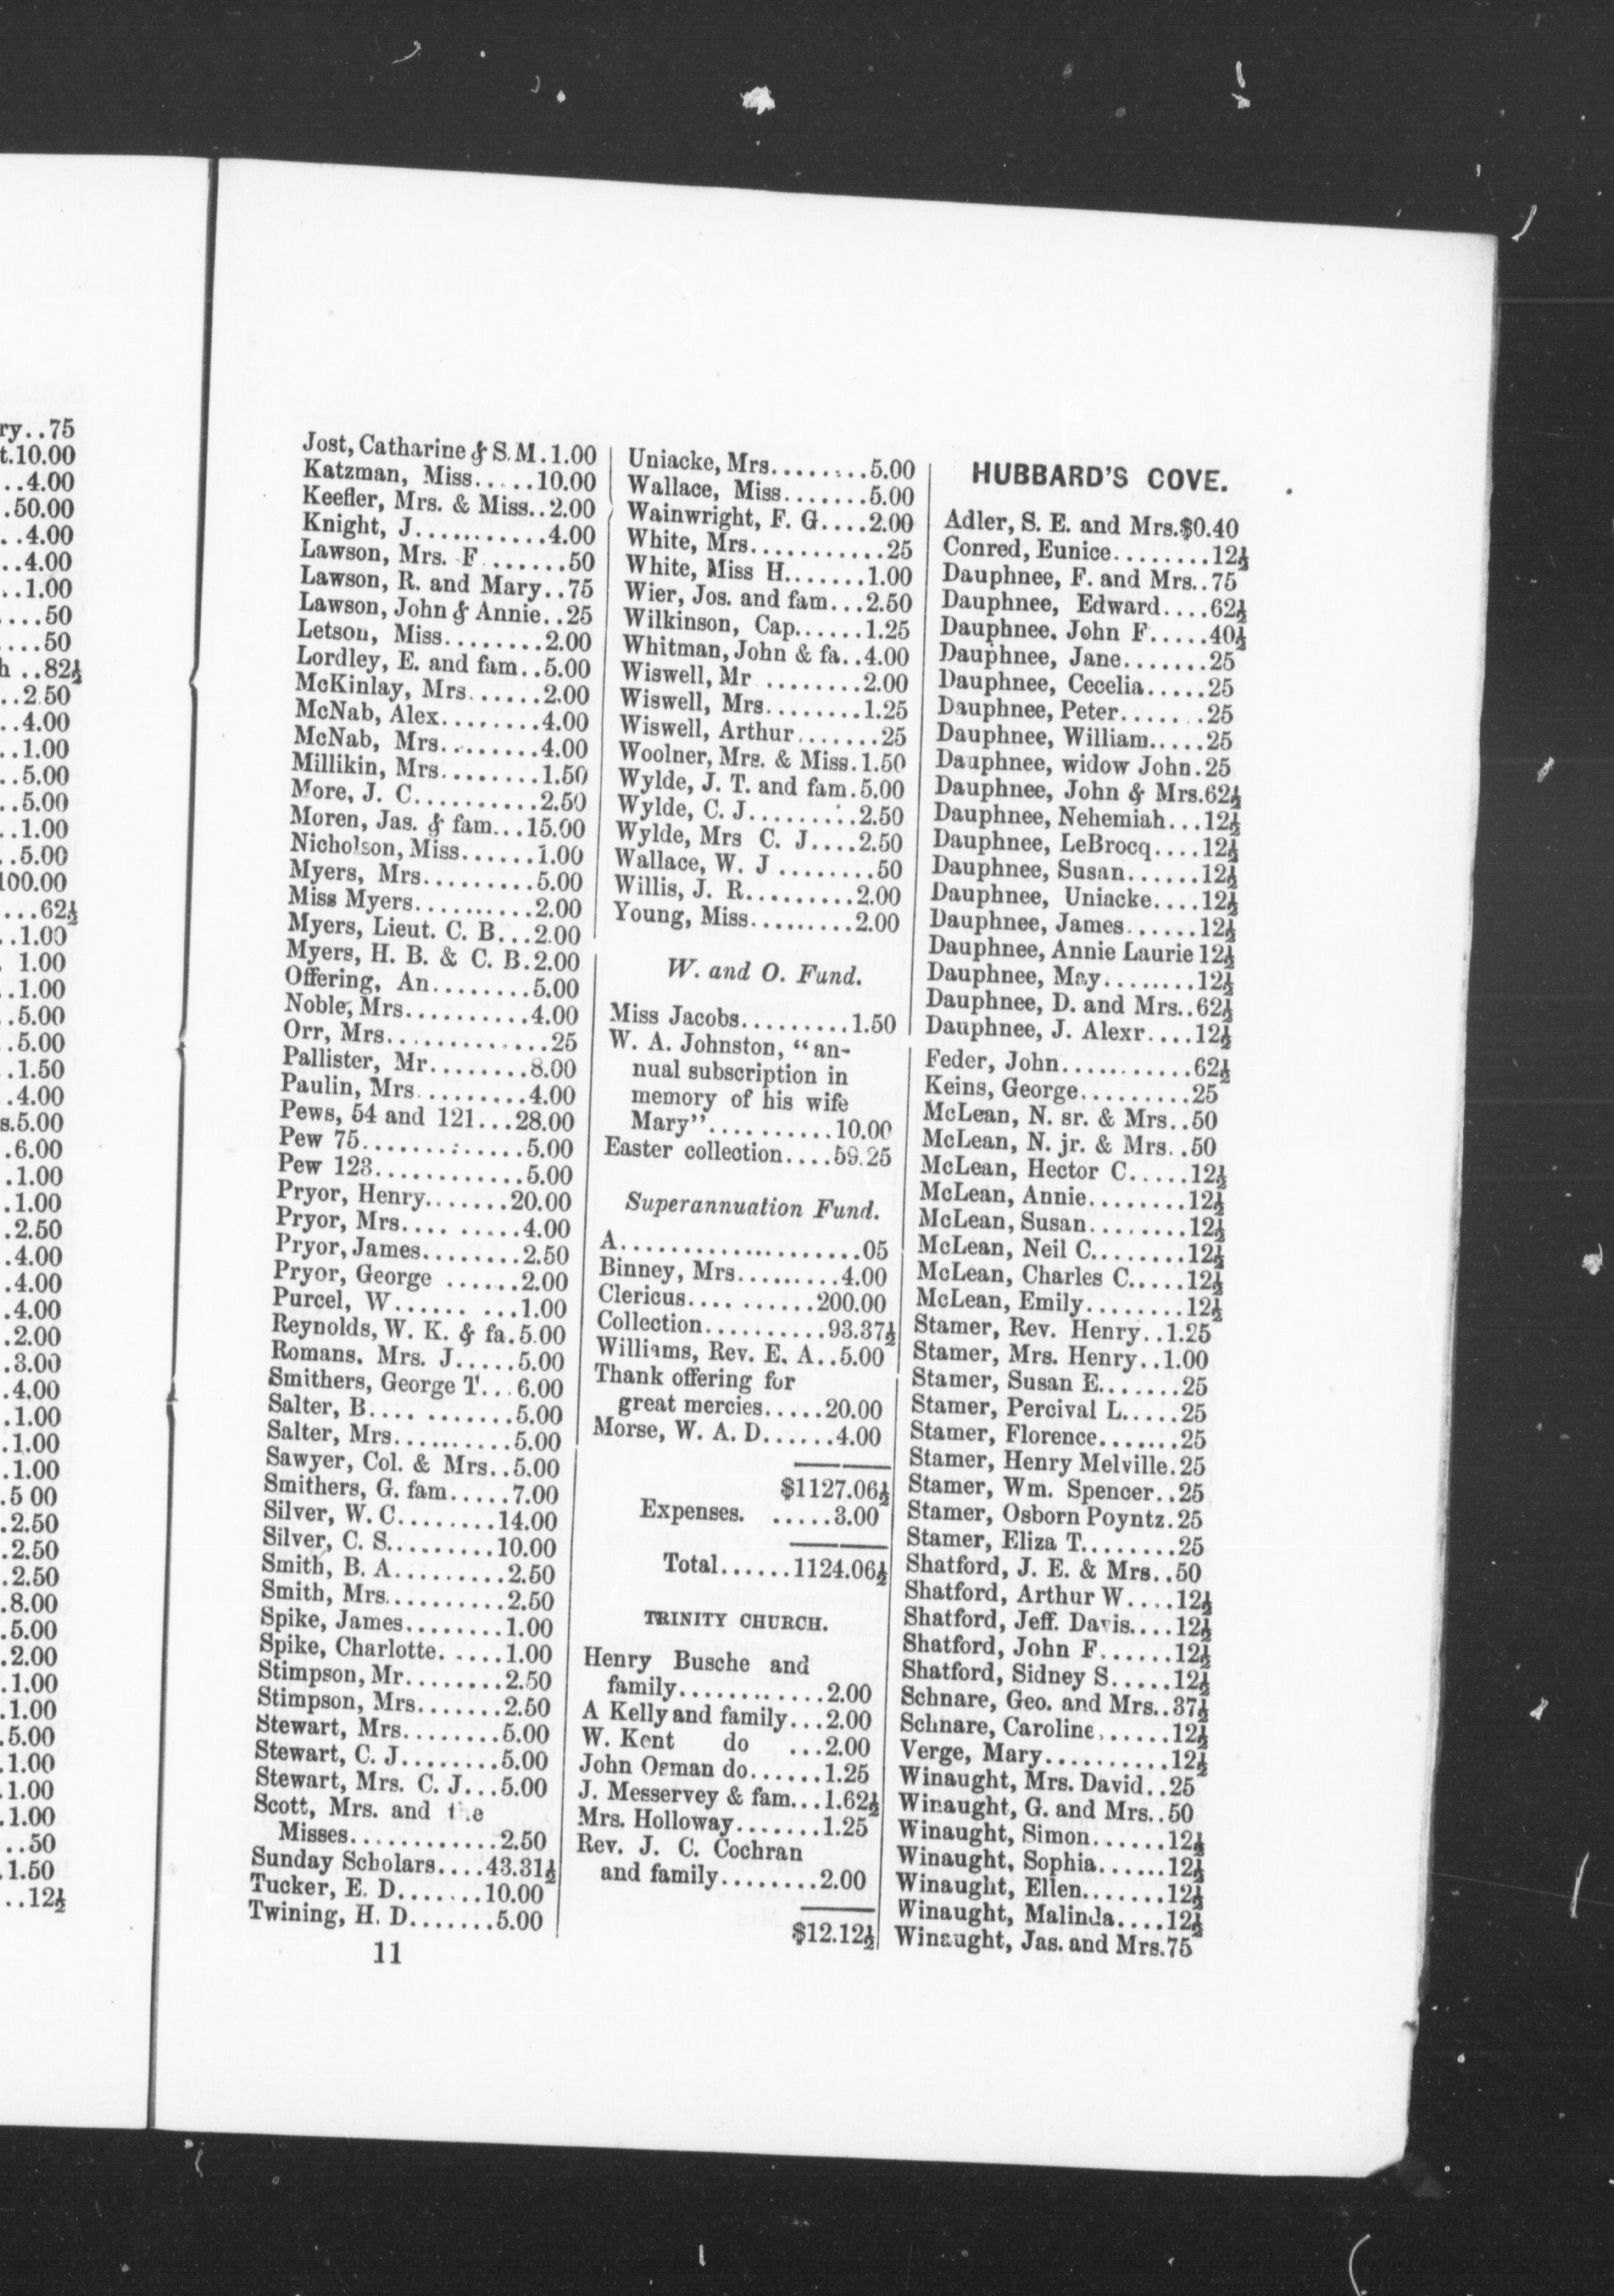 ry..75
t.10.00
..4.00
.50.00
..4.00
..4.00
..1.00
....50
....50
h ..82½
..2.50
..4.00
..1.00
..5.00
..5.00
..1.00
..5.00
100.00
...62½
..1.00
1.00
..1.00
..5.00
..5.00
..1.50
..4.00
s.5.00
.6.00
.1.00
.1.00
.2.50
.4.00
.4.00
.4.00
.2.00
.3.00
.4.00
.1.00
.1.00
.1.00
.5 00
.2.50
.2.50
.2.50
.8.00
.5.00
.2.00
.1.00
.1.00
.5.00
.1.00
.1.00
.1.00
..50
1.50
..12½
Jost, Catharine & S. M.1.00
Katzman, Miss.....10.00
Keefler, Mrs. & Miss..2.00
Knight, J...........4.00
Lawson, Mrs. F.......50
Lawson, R. and Mary..75
Lawson, John & Annie..25
Letson, Miss........2.00
Lordley, E. and fam..5.00
McKinlay, Mrs......2.00
McNab, Alex........4.00
McNab, Mrs.........4.00
Millikin, Mrs........1.50
More, J. C..........2.50
Moren, Jas. & fam...15.00
Nicholson, Miss......1.00
Myers, Mrs.........5.00
Miss Myers..........2.00
Myers, Lieut. C. B...2.00
Myers, H. B. & C. B.2.00
Offering, An........5.00
Noble, Mrs..........4.00
Orr, Mrs..............25
Pallister, Mr........8.00
Paulin, Mrs.........4.00
Pews, 54 and 121...28.00
Pew 75.............5.00
Pew 123............5.00
Pryor, Henry.......20.00
Pryor, Mrs.... .....4.00
Pryor, James........2.50
Pryor, George ......2.00
Purcel, W...... ...1.00
Reynolds, W. K. & fa.5.00
Romans. Mrs. J.....5.00
Smithers, George T...6.00
Salter, B.... .......5.00
Salter, Mrs..........5.00
Sawyer, Col. & Mrs..5.00
Smithers, G. fam.....7.00
Silver, W. C........14.00
Silver, C. S.........10.00
Smith, B. A.........2.50
Smith, Mrs..........2.50
Spike, James........1.00
Spike, Charlotte. .....1.00
Stimpson, Mr........2.50
Stimpson, Mrs.......2.50
Stewart, Mrs........5.00
Stewart, C. J........5.00
Stewart, Mrs. C. J...5.00
Scott, Mrs. and the
Misses............2.50
Sunday Scholars....43.31½
Tucker, E. D.......10.00
Twining, H. D.......5.00
11
Uniacke, Mrs........5.00
Wallace, Miss.......5.00
Wainwright, F. G....2.00
White, Mrs...........25
White, Miss H.......1.00
Wier, Jos. and fam...2.50
Wilkinson, Cap......1.25
Whitman, John & fa..4.00
Wiswell, Mr ........2.00
Wiswell, Mrs........1.25
Wiswell, Arthur.......25
Woolner, Mrs. & Miss.1.50
Wylde, J. T. and fam.5.00
Wylde, C. J.........2.50
Wylde, Mrs C. J....2.50
Wallace, W. J ........50
Willis, J. R.........2.00
Young, Miss.........2.00
W. and O. Fund.
Miss Jacobs.........1.50
W. A. Johnston, "an-
nual subscription in
memory of his wife
Mary"..........10.00
Easter collection....59.25
Superannuation Fund.
A.....................05
Binney, Mrs.........4.00
Clericus.... .......200.00
Collection..........93.37½
Williams, Rev. E. A..5.00
Thank offering for
great mercies.....20.00
Morse, W. A. D......4.00
$1127.06½
Expenses. .....3.00
Total......1124.06½
TRINITY CHURCH.
Henry Busche and
family............2.00
A Kelly and family...2.00
W. Kent do ...2.00
John Osman do......1.25
J. Messervey & fam...1.62½
Mrs. Holloway.......1.25
Rev. J. C. Cochran
and family........2.00
$12.12½
HUBBARD'S COVE.
Adler, S. E. and Mrs.$0.40
Conred, Eunice........12½
Dauphnee, F. and Mrs..75
Dauphnee, Edward....62½
Dauphnee. John F.....40½
Dauphnee, Jane.......25
Dauphnee, Cecelia.....25
Dauphnee, Peter.......25
Dauphnee, William.....25
Dauphnee, widow John.25
Dauphnee, John & Mrs.62½
Dauphnee, Nehemiah...12½
Dauphnee, LeBrocq....12½
Dauphnee, Susan......12½
Dauphnee, Uniacke....12½
Dauphnee, James......12½
Dauphnee, Annie Laurie 12½
Dauphnee, May........12½
Dauphnee, D. and Mrs..62½
Dauphnee, J. Alexr....12½
Feder, John...........62½
Keins, George.........25
McLean, N. sr. & Mrs..50
McLean, N. jr. & Mrs..50
McLean, Hector C.....12½
McLean, Annie........12½
McLean, Susan........12½
McLean, Neil C........12½
McLean, Charles C.....12½
McLean, Emily........12½
Stamer, Rev. Henry..1.25
Stamer, Mrs. Henry..1.00
Stamer, Susan E.......25
Stamer, Percival L.....25
Stamer, Florence.......25
Stamer, Henry Melville.25
Stamer, Wm. Spencer..25
Stamer, Osborn Poyntz.25
Stamer, Eliza T........25
Shatford, J. E. & Mrs..50
Shatford, Arthur W....12½
Shatford, Jeff. Davis....12½
Shatford, John F......12½
Shatford, Sidney S.....12½
Schnare, Geo. and Mrs..37½
Schnare, Caroline......12½
Verge, Mary..........12½
Winaught, Mrs. David..25
Winaught, G. and Mrs..50
Winaught, Simon......12½
Winaught, Sophia......12½
Winaught, Ellen.......12½
Winaught, Malinda....12½
Winaught, Jas. and Mrs.75